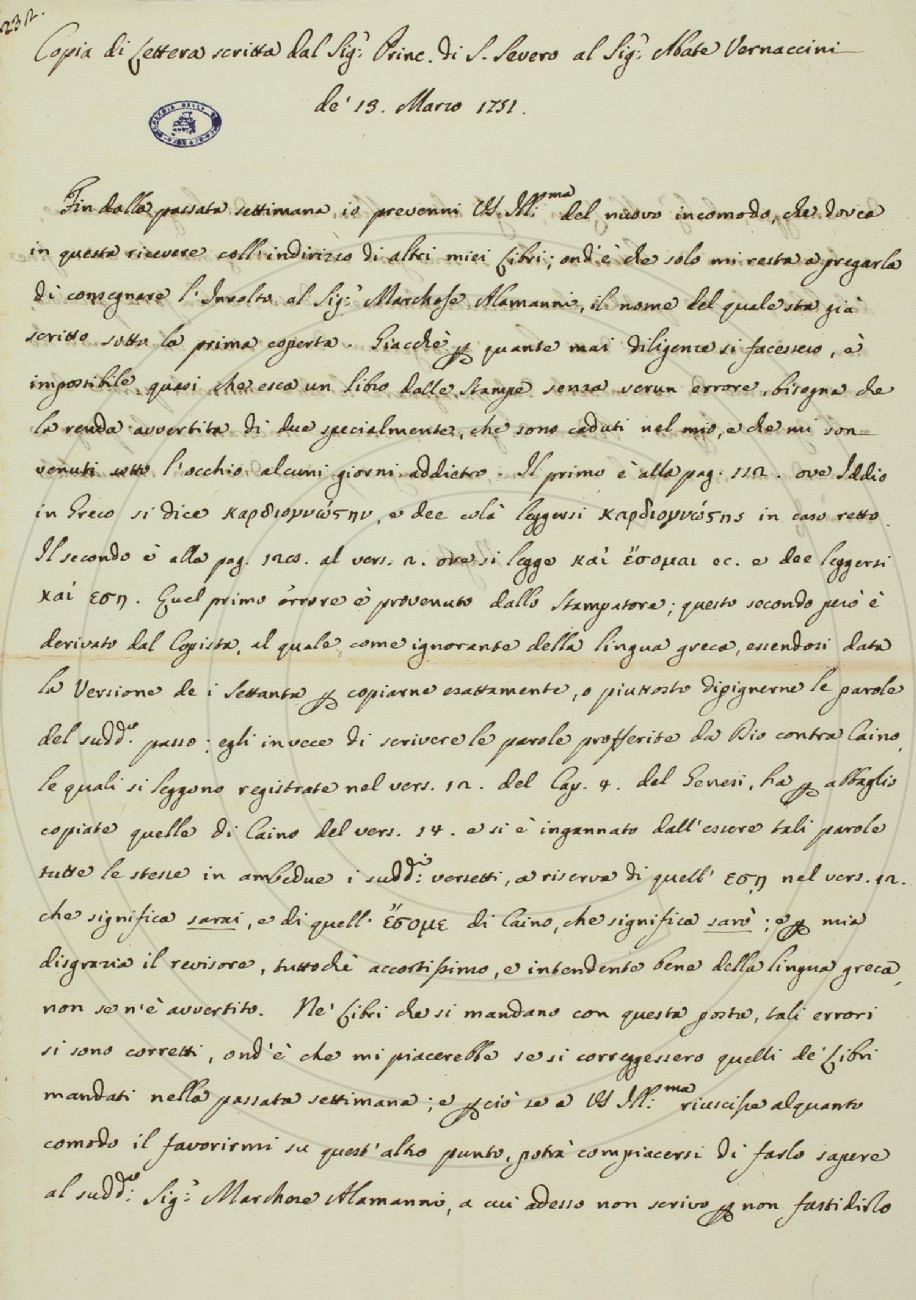 232.
Copia di Lettera scritta dal Sig.r Princ. di S. Severo al Sig.r Abate Vernaccini
de' 13. Marzo 1751.
Fin dalla passata settimana io prevenni VS. Ill.ma del nuovo incomodo, che dovea
in questa ricevere coll'indirizzo di altri miei Libri; ond'è che solo mi resta a pregarla
di consegnare l'Involto al Sig.r Marchese Alamanni, il nome del quale sta già
scritto sotto la prima coperta. Giacchè ꝑ quante mai diligenze si facessero, è
impossibile quasi che esca un libro dalle Stampe senza verun errore, bisogna che
la renda avvertita di due specialmente, che sono caduti nel mio, e che mi son
venuti sotto l'occhio alcuni giorni addietro. Il primo è alla pag. 112. ove Iddio
in Greco si dice καρδιογνώςην, e dee colà leggersi καρδιογνώςης in caso retto.
Il secondo è alla pag. 120. al vers. 2. ove si legge καί ἔσομαι ec. e dee leggersi
καί εση. Quel primo errore è provenuto dallo Stampatore; questo secondo però è
derivato dal Copista, al quale, come ignorante della lingua greca, essendosi data
la Versione de i Settanta ꝑ copiarne esattamente, o piuttosto dipignerne le parole
del sudd.o passo; egli invece di scrivere le parole profferite da Dio contra Caino,
le quali si leggono registrate nel vers. 12. del Cap. 4. del Genesi, ha ꝑ abbaglio
copiate quelle di Caino del vers. 14. e si è ingannato dall'essere tali parole
tutte le stesse in ambedue i sudd.i versetti, a riserva di quell' εση nel vers. 12.
che significa sarai, e di quell' ἔσομε di Caino, che significa sarò; e ꝑ mia
disgrazia il revisore, tuttochè accortissimo, e intendente bene della lingua greca,
non se n'è avvertito. Ne' Libri che si mandano con questa posta, tali errori
si sono corretti, ond'è che mi piacerebbe se si correggessero quelli de' Libri
mandati nella passata settimana; e ꝑciò se a VS Ill.ma riuscisse alquanto
comodo il favorirmi su quest'altro punto, potrà compiacersi di farlo sapere
al sudd.o Sig.r Marchese Alamanni, a cui adesso non scrivo ꝑ non fastidirlo